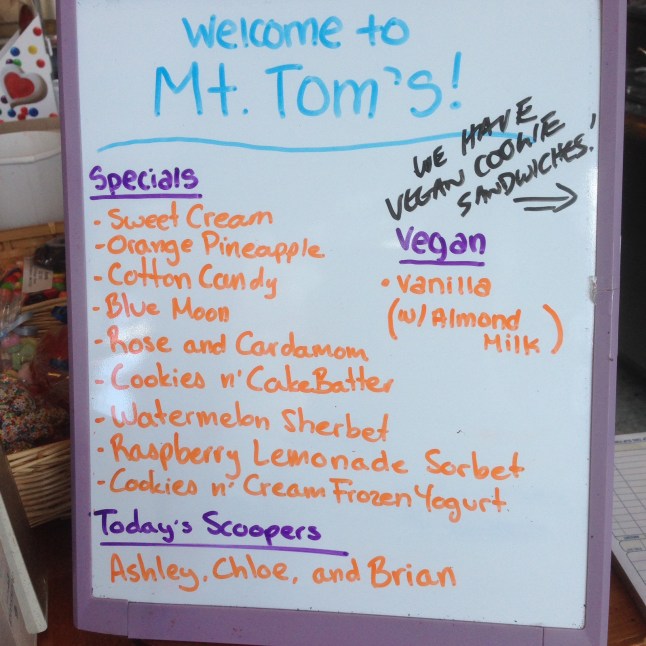 Welcome to
Mt. Tom's!
WE HAVE
VEGAN COOKIE
SANDWICHES!
Specials
- Sweet Cream
- Orange Pineapple
- Cotton Candy
- Blue Moon
- Rose and Cardamom
- Cookies n' Cake Batter
- Watermelon Sherbet
- Raspberry Lemonade Sorbet
- Cookies n' Cream Frozen Yogurt
Vegan
• Vanilla
(w/ Almond
Milk)
Today's Scoopers
Ashley, Chloe, and Brian